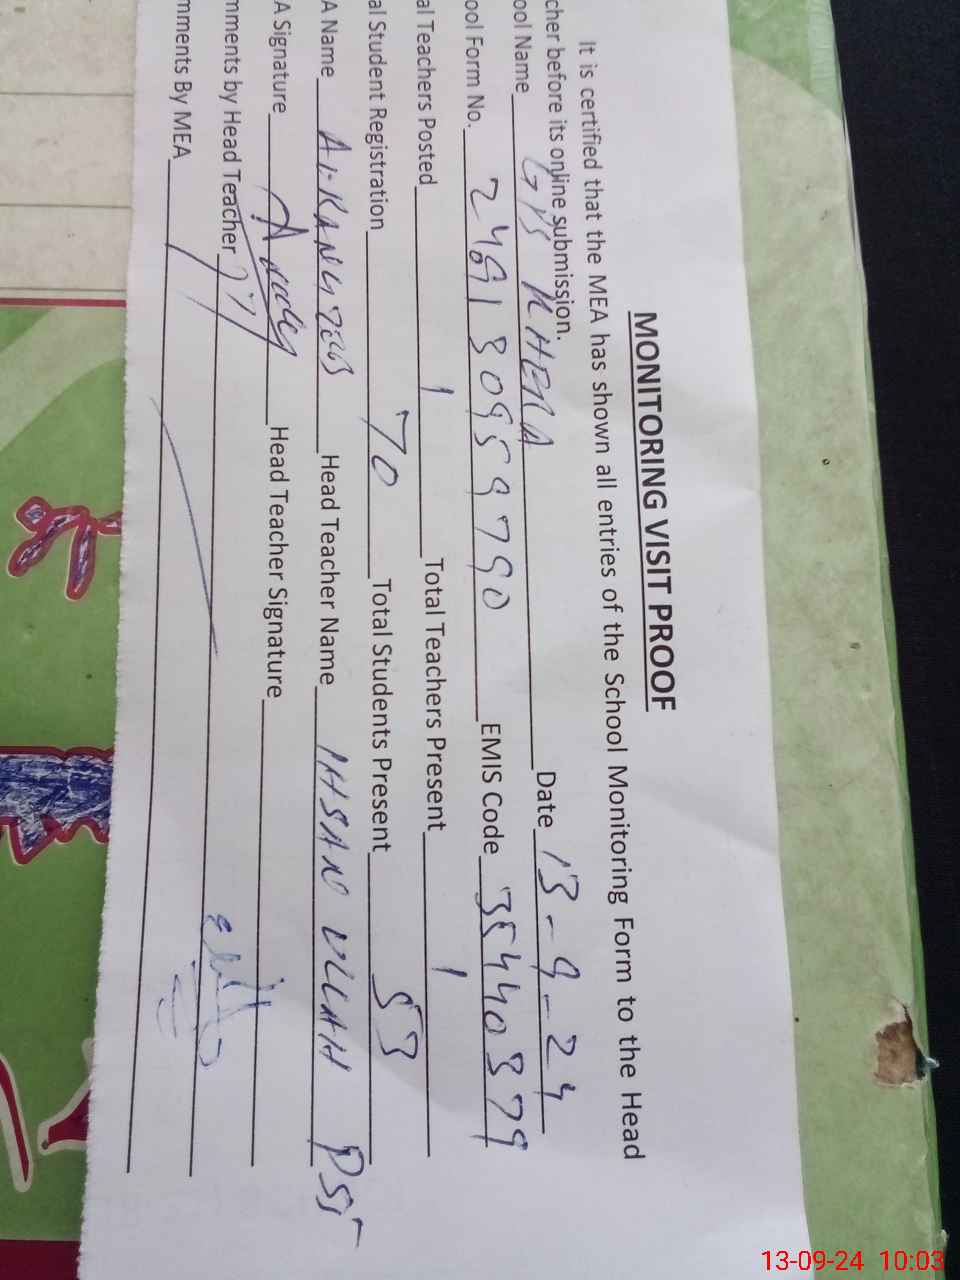 MONITORING VISIT PROOF
It is certified that the MEA has shown all entries of the School Monitoring Form to the Head
cher before its online submission.
ool Name GPS KHERA Date 13-9-24
ool Form No. EMIS Code 35440379
al Teachers Posted 1 Total Teachers Present 1
al Student Registration 70 Total Students Present 53
A Name Head Teacher Name IHSAN ULLAH PST
A Signature Head Teacher Signature
mments by Head Teacher
mments By MEA
13-09-24 10:03